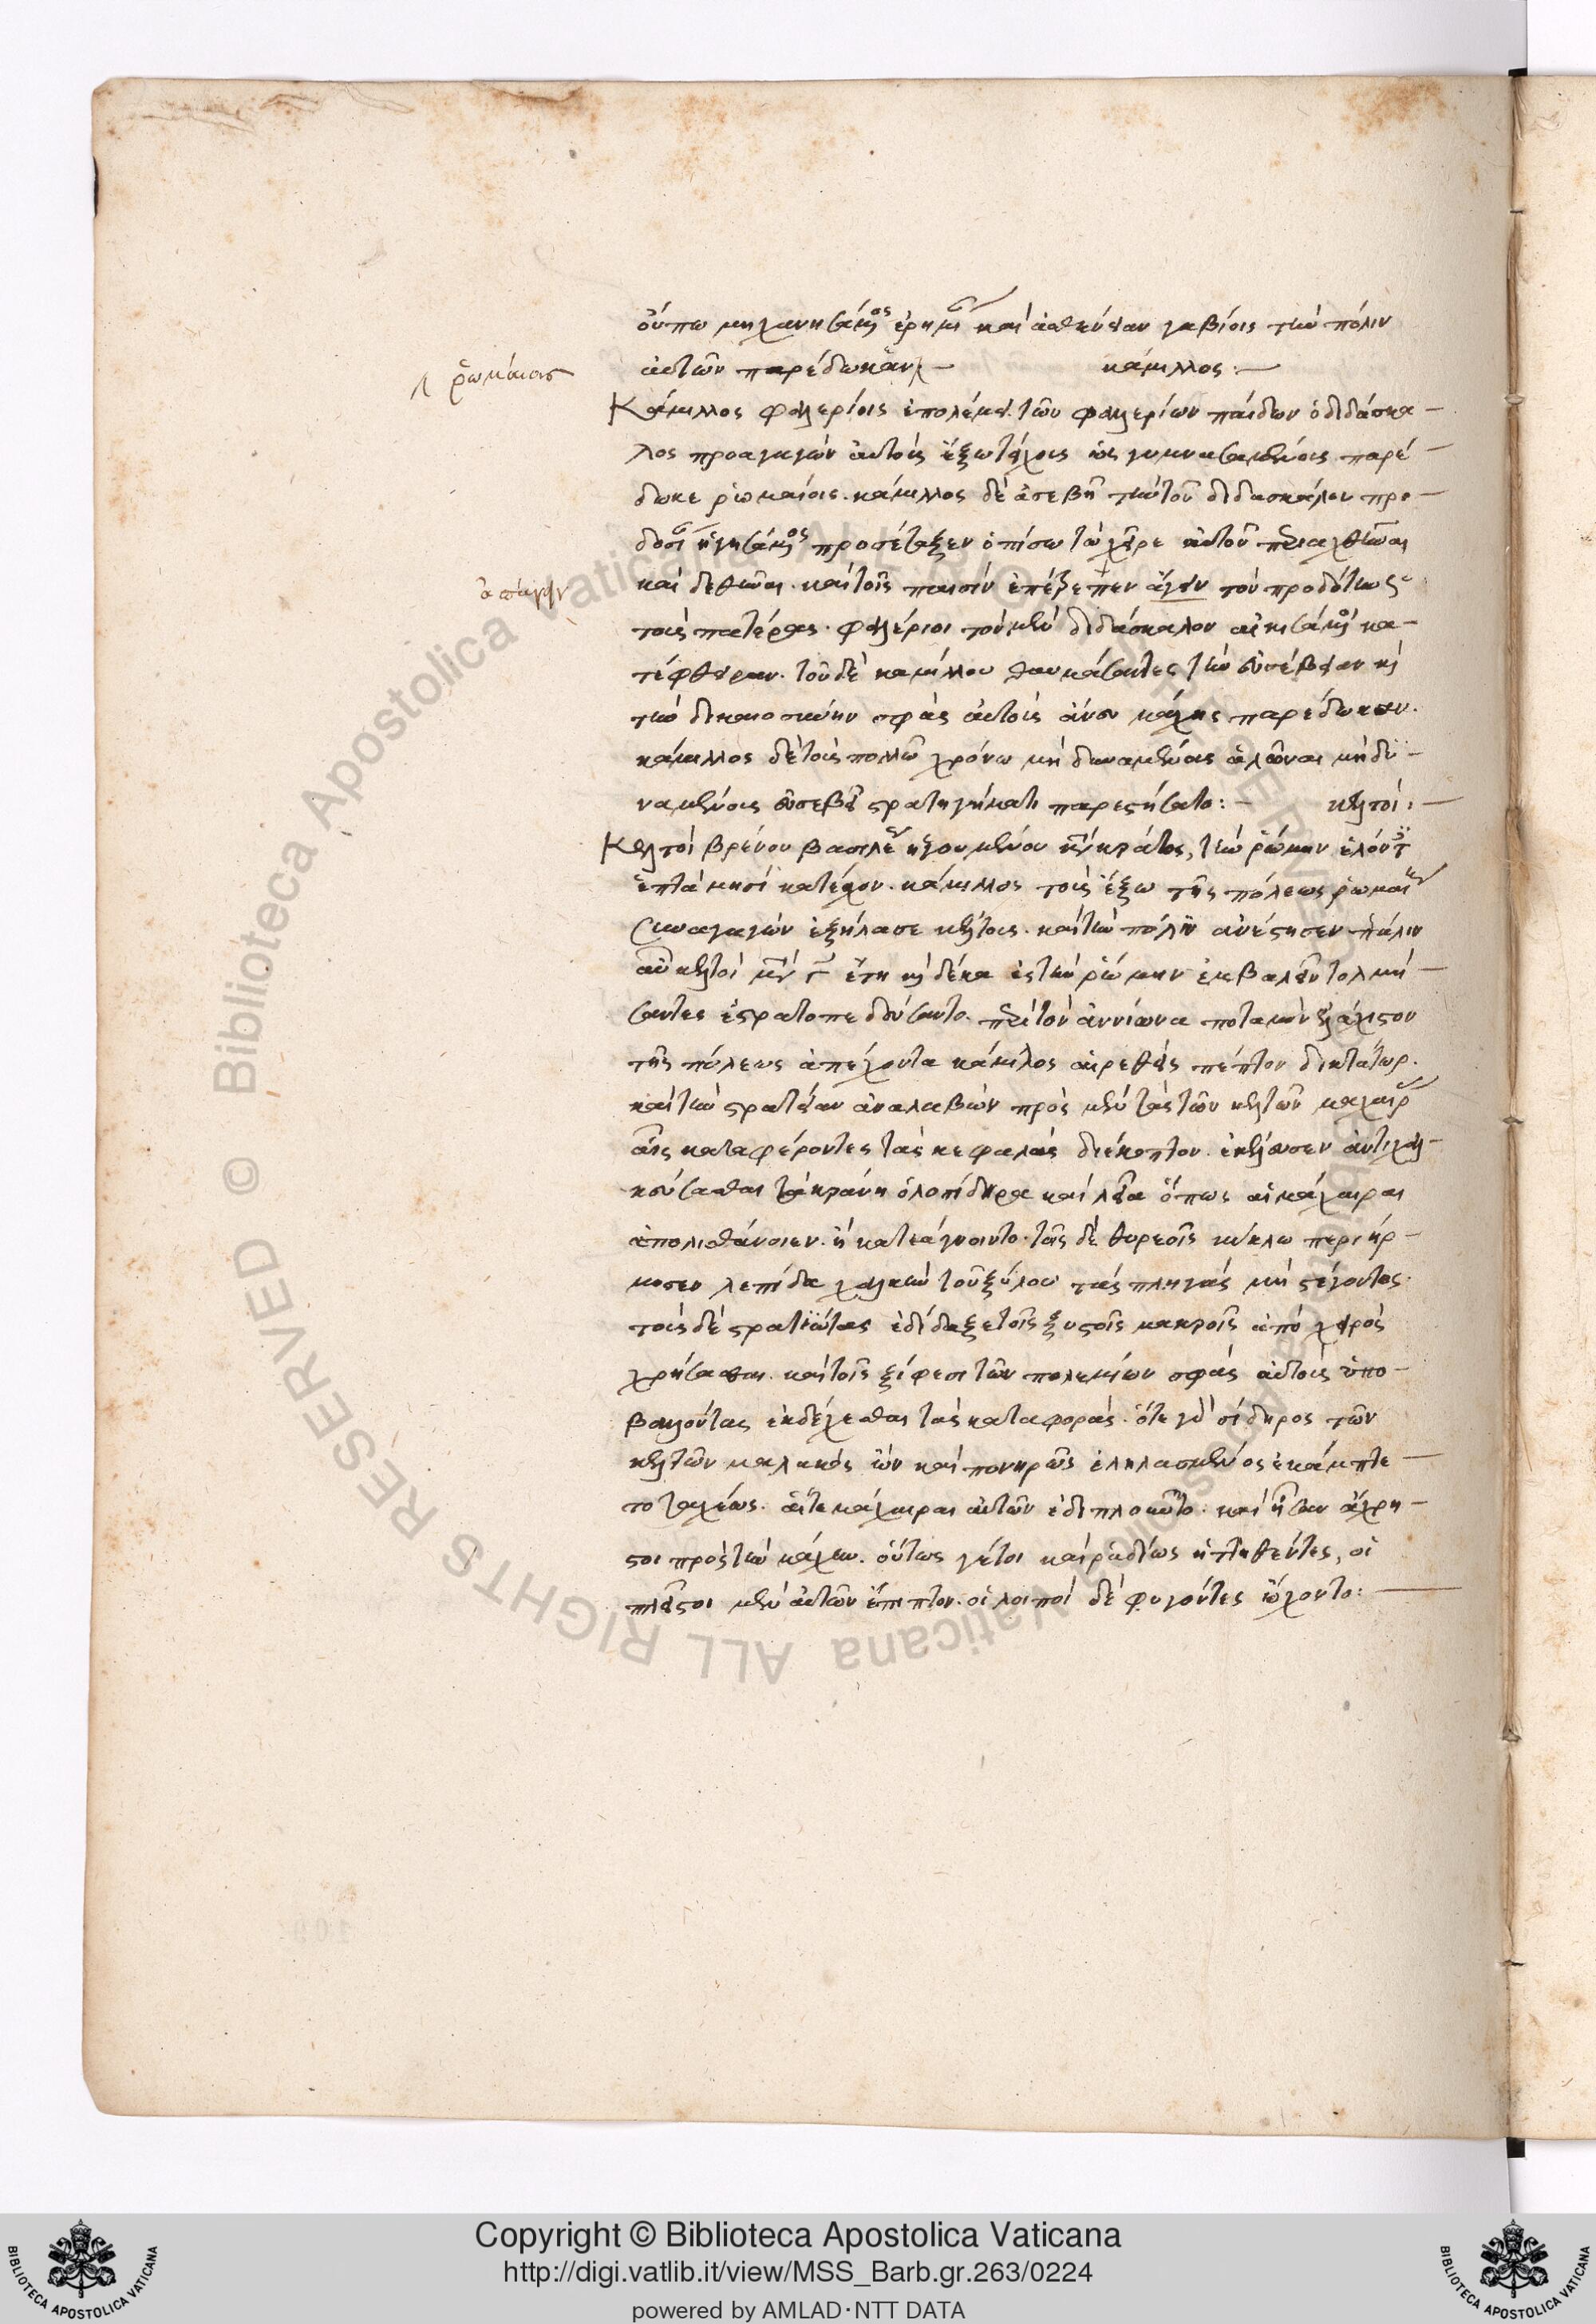 οὕπω μηχανησάμενος ἐρημίαν καὶ ἀσθένειαν γαβίοις τὴν πόλιν
ῥωμαίοις
αὐτῶν παρέδωκαν:— κάμιλλος:—
Κάμιλλος φαλερίοις ἐπολέμει. τῶν φαλερίων παίδων ὁ διδάσκα-
λος προαγαγὼν αὐτοὺς ἔξω τείχους ὡς γυμνασαμένους παρέ-
δωκε ῥωμαίοις. κάμιλλος δὲ ἀσεβῆ τὴν τοῦ διδασκάλου προ-
δοσίαν ἡγησάμενος προσέταξεν ὀπίσω τὼ χεῖρε αὐτοῦ περιαχθῆναι
καὶ δεθῆναι. καὶ τοῖς παισὶν ἐπέτρεπεν ἄγειν τὸν προδότην ὡς
ἀπάγειν
τοὺς πατέρας. φαλέριοι τὸν μὲν διδάσκαλον αἰκισάμενοι κα-
τέφθειραν. τοῦ δὲ καμίλλου θαυμάσαντες τὴν εὐσέβειαν καὶ
τὴν δικαιοσύνην σφᾶς αὐτοὺς ἄνευ μάχης παρέδωκαν.
κάμιλλος δὲ τοὺς πολλῷ χρόνῳ μὴ δυναμένους ἁλῶναι μὴ δυ-
ναμένους εὐσεβεῖ στρατηγήματι παρεστήσατο:— κελτοί:—
Κελτοὶ βρένου βασιλέως ἡγουμένου κατὰ κράτος, τὴν ῥώμην ἑλόντες
ἑπτὰ μησὶ κατέσχον. κάμιλλος τοὺς ἔξω τῆς πόλεως ῥωμαίους
συναγαγὼν ἐξήλασε κελτοὺς. καὶ τὴν πόλιν ἀνέστησεν πάλιν
αὖ κελτοὶ μετὰ γ ἔτη καὶ δέκα ἐς τὴν ῥώμην ἐμβαλεῖν τολμή-
σαντες ἐστρατοπεδεύσαντο περὶ τὸν ἀννίωνα ποταμὸν ἐλάχιστον
τῆς πόλεως ἀπέχοντα κάμιλος αἱρεθεὶς πέμπτον δικτάτωρ.
καὶ τὴν στρατείαν ἀναλαβὼν πρὸς μὲν τὰς τῶν κελτῶν μαχαίρας
αἷς καταφέροντες τὰς κεφαλὰς διέκοπτον. ἐκέλευσεν ἀντιχαλ-
κεύσασθαι τὰ κράνη ὁλοσίδηρα καὶ λεῖα ὅπως αἱ μάχαιραι
ἀπολισθάνοιεν. ἢ κατεάγνοιντο. τοῖς δὲ θυρεοῖς κύκλῳ περιήρ-
μοσεν λεπίδα χαλκῆν τοῦ ξύλου τὰς πληγὰς μὴ στέγοντος.
τοὺς δὲ στρατιώτας ἐδίδαξε τοῖς ξυστοῖς μακροῖς ἀπὸ χειρὸς
χρῆσασθαι. καὶ τοῖς ξίφεσι τῶν πολεμίων σφᾶς αὐτοὺς ὑπο-
βαλόντας ἐκδέχεσθαι τὰς καταφοράς. ὅτε γὰρ σίδηρος τῶν
κελτῶν μαλακὸς ὢν καὶ πονηρῶς ἐληλασμένος ἐκάμπτε-
το ταχέως. αἵτε μάχαιραι αὐτῶν ἐδιπλοῦντο. καὶ ἦσαν ἄχρη-
στοι πρὸς τὴν μάχην. οὕτως γέτοι καὶ ῥᾳδίως ἡττηθέντες, οἱ
πλεῖστοι μὲν αὐτῶν ἔπιπτον. οἱ λοιποὶ δὲ φυγόντες ᾤχοντο:—
© Biblioteca Apostolica Vaticana ALL RIGHTS RESERVED
Copyright © Biblioteca Apostolica Vaticana
http://digi.vatlib.it/view/MSS_Barb.gr.263/0224
powered by AMLAD·NTT DATA
BIBLIOTECA APOSTOLICA VATICANA
BIBLIOTECA APOSTOLICA VATICANA